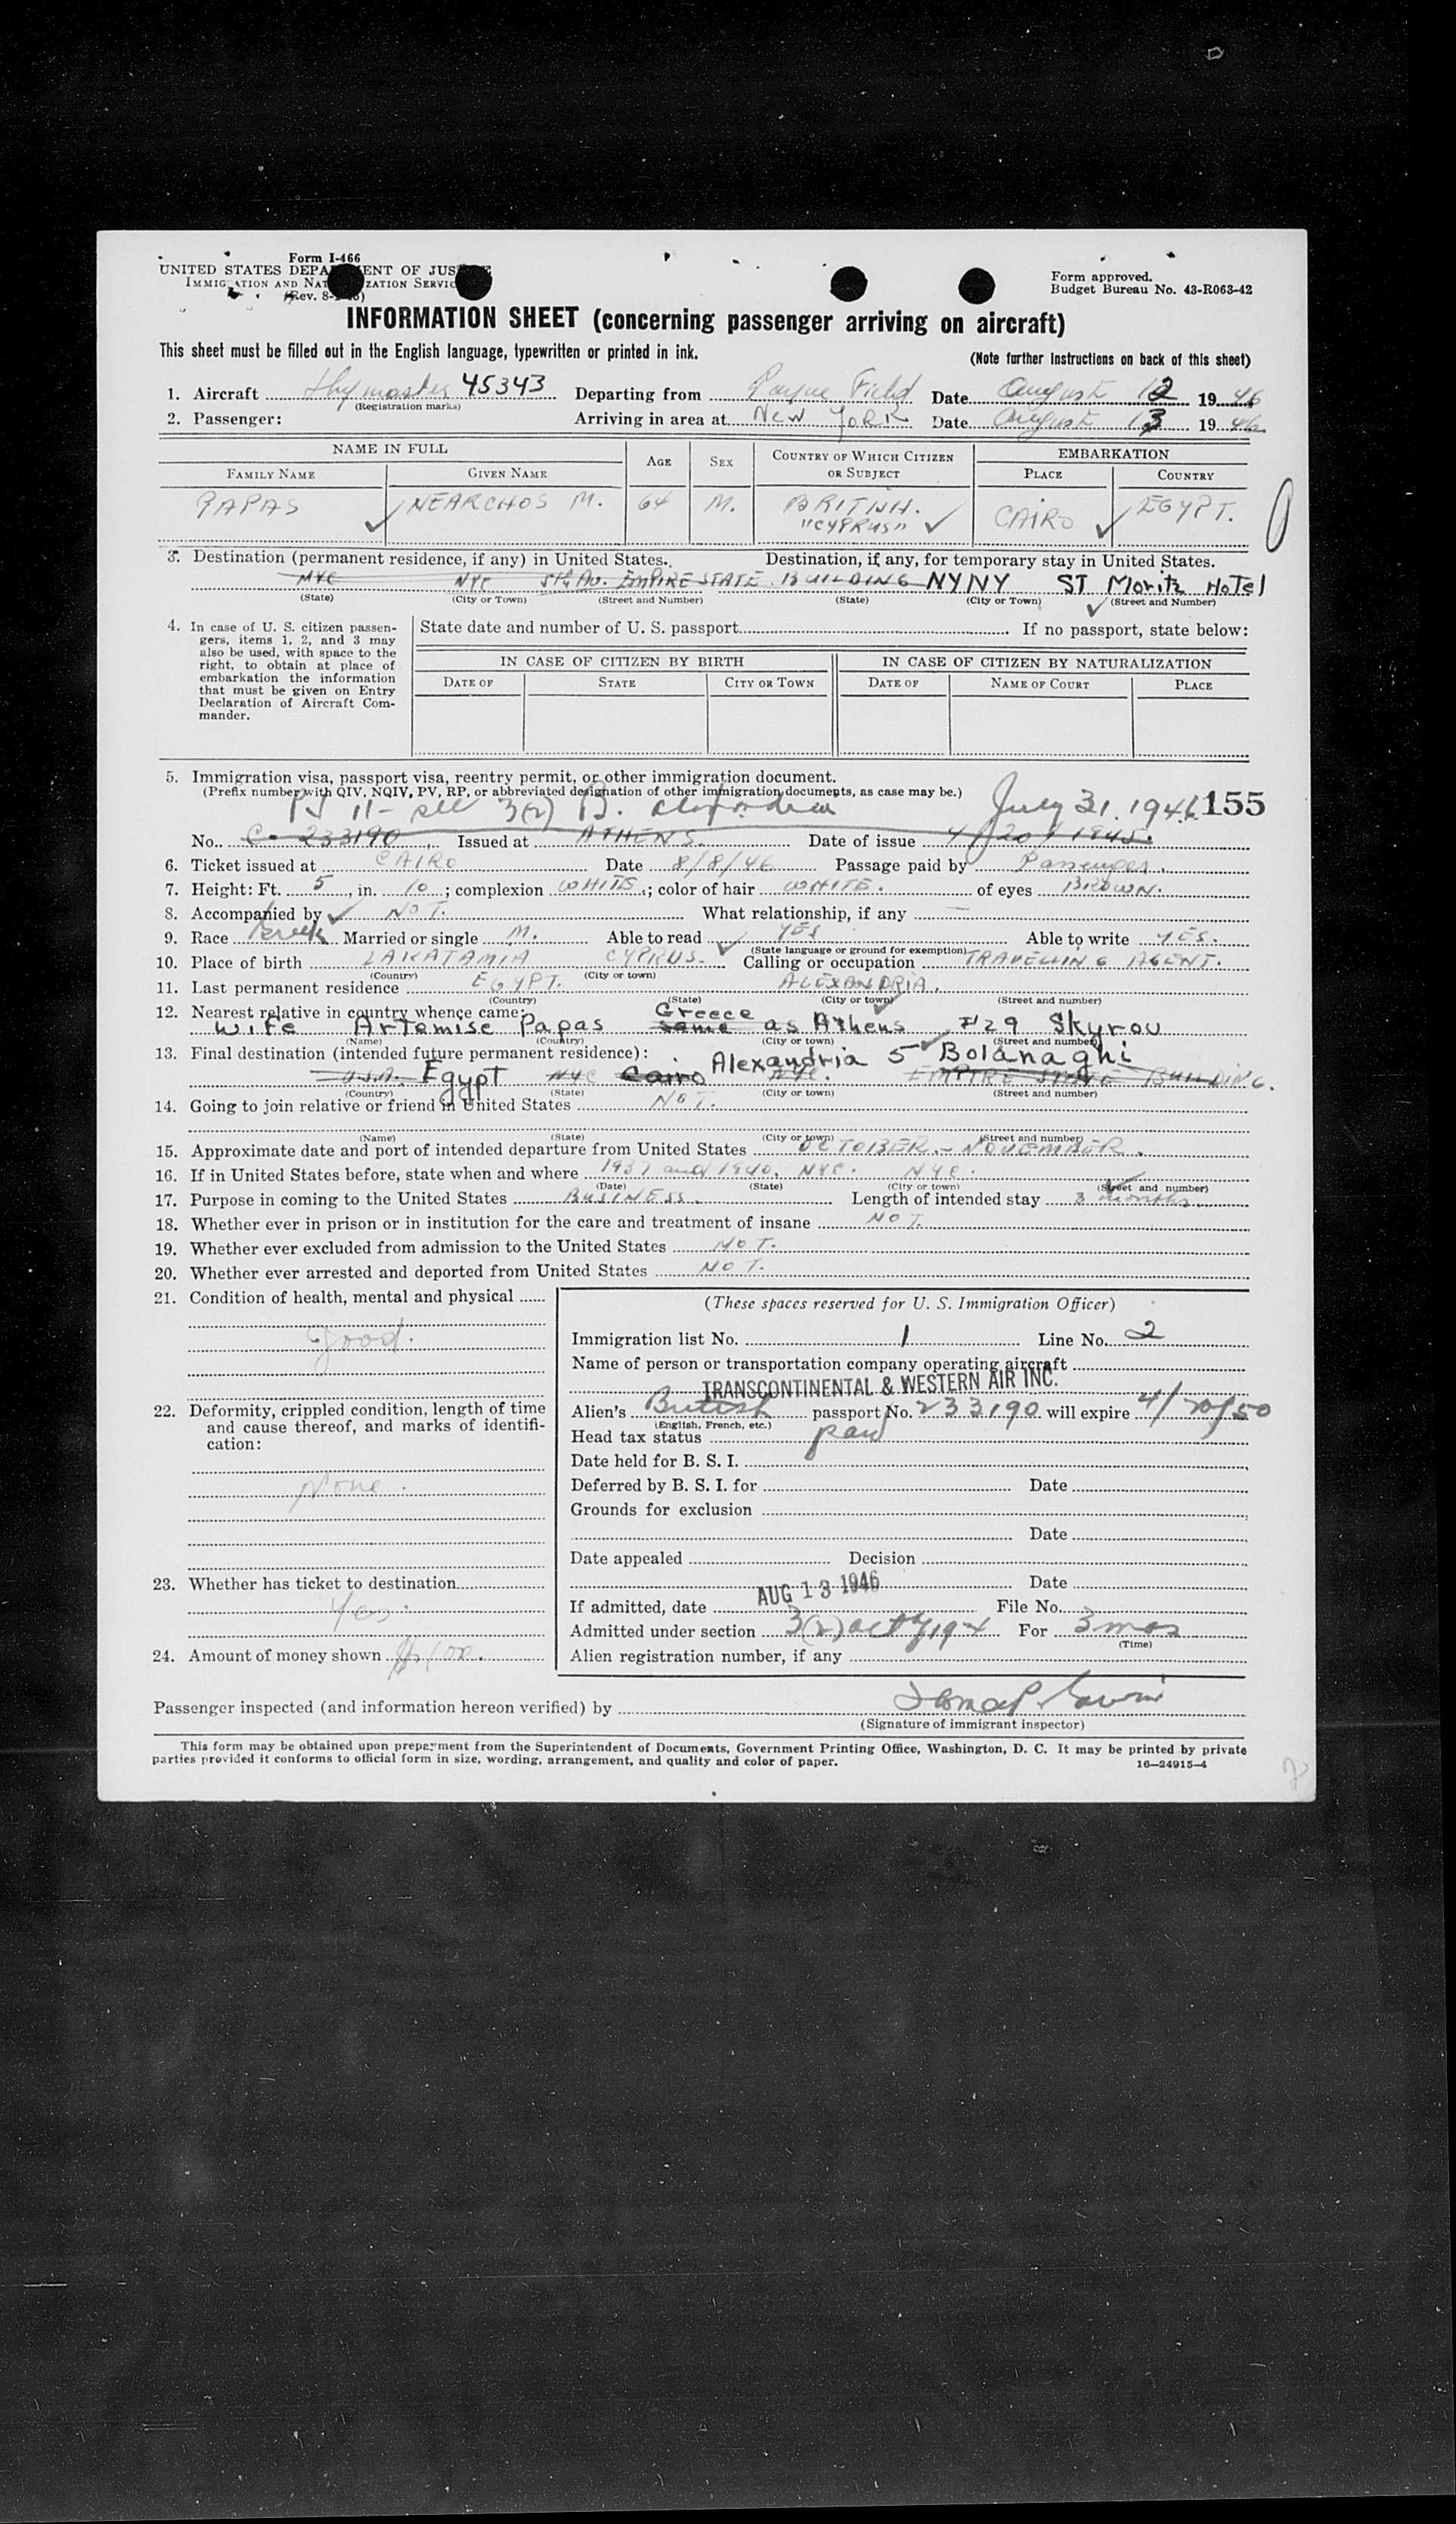 Form I-466
UNITED STATES DEPA ENT OF JUS E
IMMIG ATION AND NAT ZATION SERVIC
(Rev. 8- )
Form approved.
Budget Bureau No. 43-R063-42
INFORMATION SHEET (concerning passenger arriving on aircraft)
This sheet must be filled out in the English language, typewritten or printed in ink.
(Note further instructions on back of this sheet)
1. Aircraft Skymaster 45343 Departing from Payne Field Date August 12 1946
(Registration marks)
2. Passenger: Arriving in area at New York Date August 13 1946
NAME IN FULL AGE SEX COUNTRY OF WHICH CITIZEN OR SUBJECT EMBARKATION
FAMILY NAME GIVEN NAME PLACE COUNTRY
PAPAS NEARCHOS M. 64 M. BRITISH. CAIRO EGYPT.
"CYPRUS"
3. Destination (permanent residence, if any) in United States. Destination, if any, for temporary stay in United States.
NYC NYC 5th Av. EMPIRE STATE BUILDING NY NY ST Moritz Hotel
(State) (City or Town) (Street and Number) (State) (City or Town) (Street and Number)
4. In case of U. S. citizen passengers, items 1, 2, and 3 may also be used, with space to the right, to obtain at place of embarkation the information that must be given on Entry Declaration of Aircraft Commander.
State date and number of U. S. passport If no passport, state below:
IN CASE OF CITIZEN BY BIRTH IN CASE OF CITIZEN BY NATURALIZATION
DATE OF STATE CITY OR TOWN DATE OF NAME OF COURT PLACE
5. Immigration visa, passport visa, reentry permit, or other immigration document.
(Prefix number with QIV, NQIV, PV, RP, or abbreviated designation of other immigration documents, as case may be.)
PV 11- sec 3(2) B. July 31. 1946 155
No. C- 233190 Issued at ATHENS. Date of issue 4/20/1945.
6. Ticket issued at CAIRO Date 8/8/46 Passage paid by Passenger.
7. Height: Ft. 5, in. 10; complexion WHITE; color of hair WHITE. of eyes BROWN.
8. Accompanied by NOT. What relationship, if any —
9. Race Greek Married or single M. Able to read YES Able to write YES.
(State language or ground for exemption)
10. Place of birth LAKATAMIA CYPRUS. Calling or occupation TRAVELLING AGENT.
(Country) (City or town)
11. Last permanent residence EGYPT. ALEXANDRIA.
(Country) (State) (City or town) (Street and number)
12. Nearest relative in country whence came: Greece
Wife Artemise Papas same as Athens #29 Skyrou
(Name) (Country) (City or town) (Street and number)
13. Final destination (intended future permanent residence): Alexandria 5 Bolanaghi
U.S.A. Egypt NYC Cairo NYC. EMPIRE STATE BUILDING.
(Country) (State) (City or town) (Street and number)
14. Going to join relative or friend in United States NOT.
(Name) (State) (City or town) (Street and number)
15. Approximate date and port of intended departure from United States OCTOBER - NOVEMBER.
16. If in United States before, state when and where 1937 and 1940. NYC. NYC.
(Date) (State) (City or town) (Street and number)
17. Purpose in coming to the United States BUSINESS. Length of intended stay 3 months.
18. Whether ever in prison or in institution for the care and treatment of insane NOT.
19. Whether ever excluded from admission to the United States NOT.
20. Whether ever arrested and deported from United States NOT.
21. Condition of health, mental and physical
Good.
22. Deformity, crippled condition, length of time and cause thereof, and marks of identification:
None.
23. Whether has ticket to destination
Yes.
24. Amount of money shown $100.
(These spaces reserved for U. S. Immigration Officer)
Immigration list No. 1 Line No. 2
Name of person or transportation company operating aircraft
TRANSCONTINENTAL & WESTERN AIR INC.
Alien's British passport No. 233190 will expire 4/20/50
(English, French, etc.)
Head tax status paid
Date held for B. S. I.
Deferred by B. S. I. for Date
Grounds for exclusion
Date
Date appealed Decision
Date
If admitted, date AUG 13 1946 File No.
Admitted under section 3(2) act of 1924 For 3 mos
(Time)
Alien registration number, if any
Passenger inspected (and information hereon verified) by
(Signature of immigrant inspector)
This form may be obtained upon prepayment from the Superintendent of Documents, Government Printing Office, Washington, D. C. It may be printed by private
parties provided it conforms to official form in size, wording, arrangement, and quality and color of paper.
16—24915-4